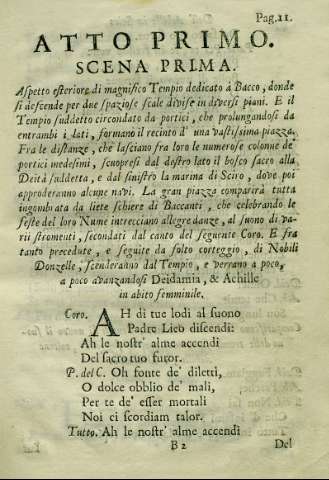 Pag. 11.
ATTO PRIMO.
SCENA PRIMA.
Aspetto esteriore di magnifico Tempio dedicato à Bacco, donde
si descende per due spaziose scale divise in diversi piani. E il
Tempio suddetto circondato da portici, che prolungandosi da
entrambi i lati, formano il recinto d' una vastissima piazza.
Fra le distanze, che lasciano fra loro le numerose colonne de'
portici medesimi, scuopresi dal distro lato il bosco sacro alla
Deità suddetta, e dal sinistro la marina di Sciro, dove poi
approderanno alcune navi. La gran piazza comparirà tutta
ingombata da liete schiere di Baccanti, che celebrando le
feste del loro Nume intrecciano allegre danze, al suono di va-
rii stromenti, secondati dal canto del seguente Coro. E fra
tanto precedute, e seguite da folto corteggio, di Nobili
Donzelle, scenderanno dal Tempio, e verrano a poco,
a poco avanzandosi Deidamia, & Achille
in abito femminile.
Coro. AH di tue lodi al suono
Padre Lieo discendi:
Ah le nostr' alme accendi
Del sacro tuo furor.
P. del C. Oh fonte de' diletti,
O dolce obblio de' mali,
Per te de' esser mortali
Noi ci scordiam talor.
Tutto. Ah le nostr' alme accendi
B 2 Del